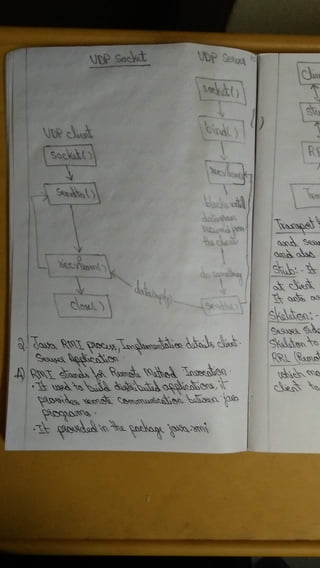 UDP Socket
UDP Server
socket()
bind()
UDP client
socket()
recvfrom()
sendto()
blocks until
datagram
received from
the client
recvfrom()
do something
data(reply)
close()
sendto()
2. Java RMI process, Implementation details client-
Server Application
A) RMI stands for Remote Method Invocation
· It used to build distributed applications, it
provides remote communication between java
programs.
· It provided in the package java.rmi
Transport
and
and also
Stub:- It
at client
It acts
Skeleton:-
Server side
Skeleton to
RRL (Remote
which
client to